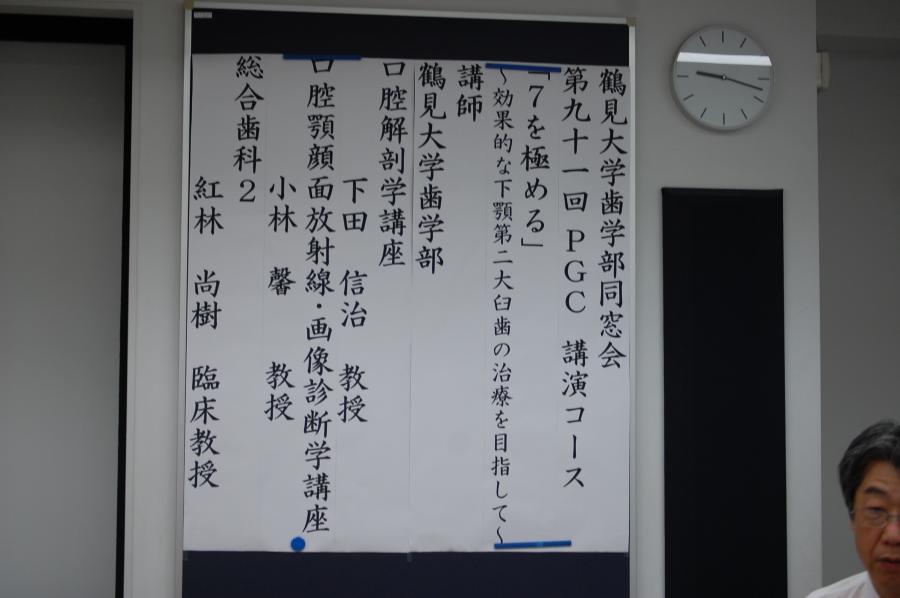 鶴見大学歯学部同窓会
第九十一回 PGC 講演コース
「7を極める」
～効果的な下顎第二大臼歯の治療を目指して～
講師
鶴見大学歯学部
口腔解剖学講座
下田 信治 教授
口腔顎顔面放射線・画像診断学講座
小林 馨 教授
総合歯科2
紅林 尚樹 臨床教授